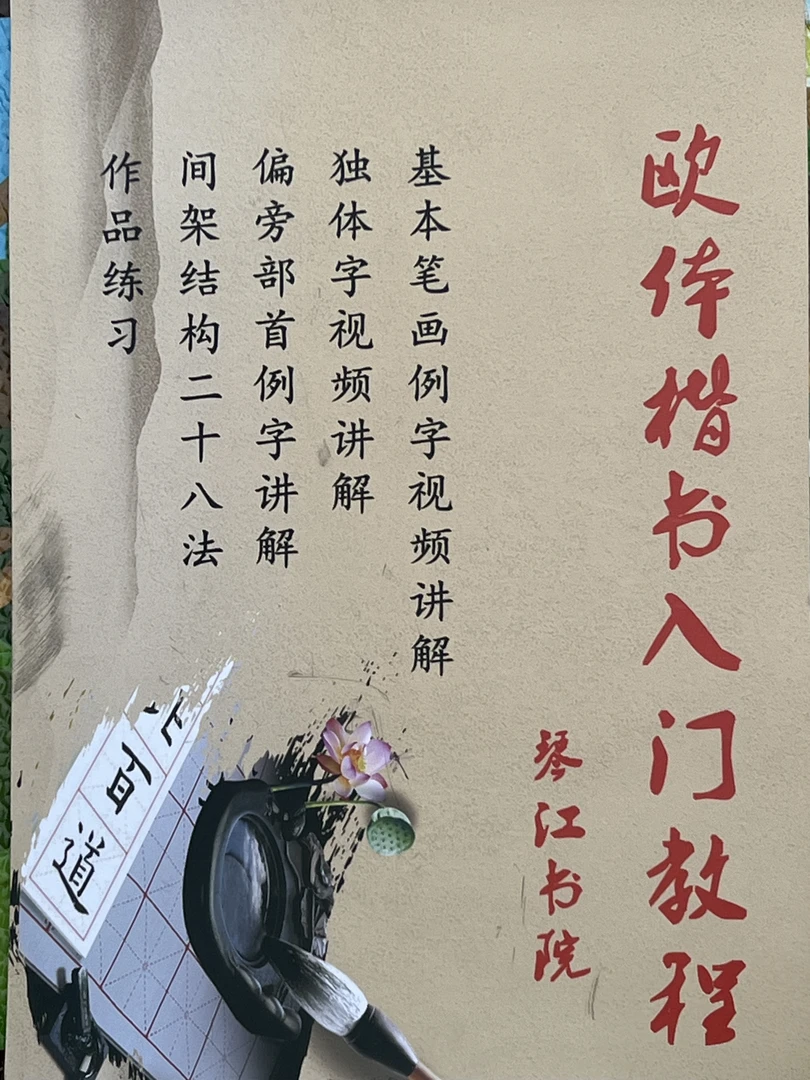 欧体楷书入门教程
琴江书院
基本笔画例字视频讲解
独体字视频讲解
偏旁部首例字讲解
间架结构二十八法
作品练习
百道